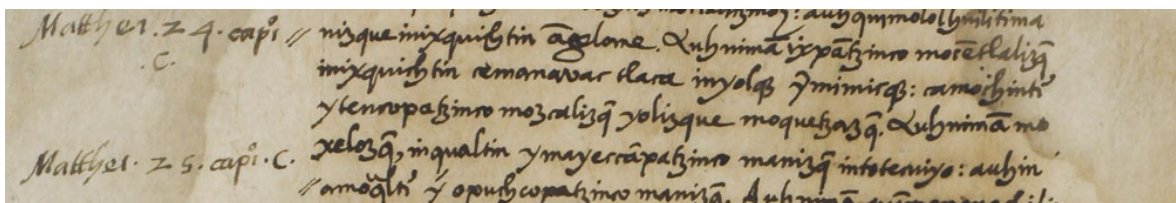 auh quimololhuilitima
Matthei . 24 . capi . C . // nizque inixquichtin āgelome . Auhnimā ixpātzinco mocētlalizq̄
inixquichtin cemanavac tlaca inyolq̄ ȳmimicq̄ : camochintī
ytencopatzinco mozcalizq̄ yolizque moquetzazq̄ . Auhnimā mo
Matthei . 25 . capi . C . xelozq̄ , inqualtin ymayeccāpatzinco manizq̄ intotecuiyo : auhin
// amoq̄ltī ȳ opuchcopatzinco manizq̄ . Auhnimā